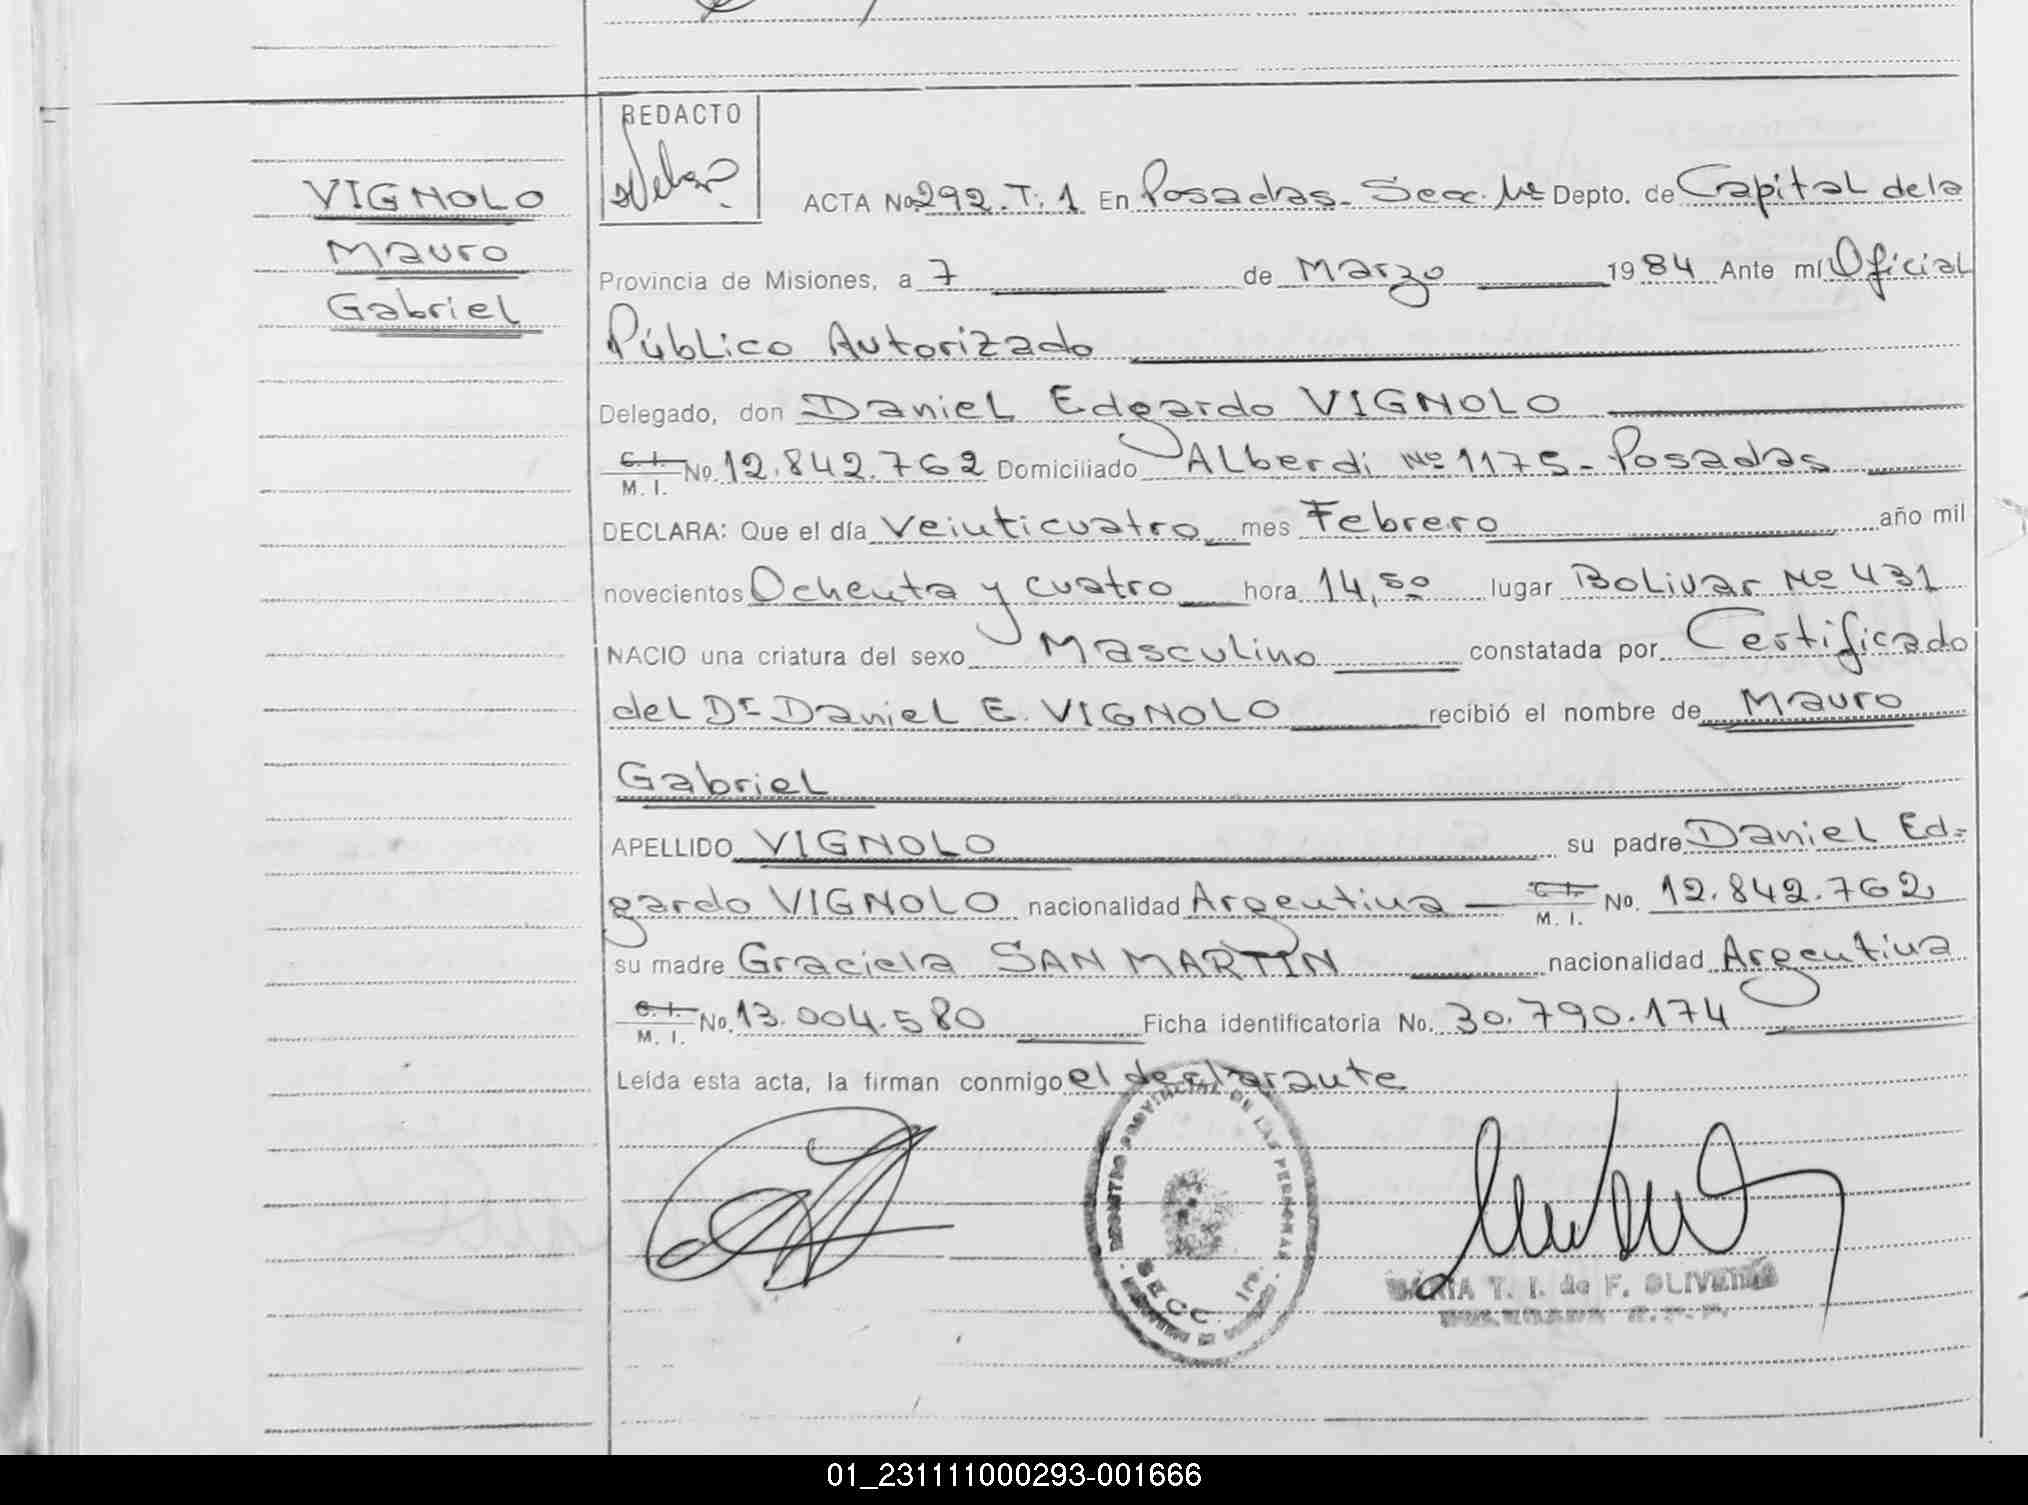 REDACTO
VIGNOLO
Mauro
Gabriel
ACTA No. 292. T: 1 En Posadas. Secc. 1ra Depto. de Capital de la
Provincia de Misiones, a 7 de Marzo 1984 Ante mí Oficial
Público Autorizado
Delegado, don Daniel Edgardo VIGNOLO
C. I. M. I. No. 12.842.762 Domiciliado Alberdi Nº 1175 - Posadas
DECLARA: Que el día Veinticuatro mes Febrero año mil
novecientos Ochenta y cuatro hora 14,50 lugar Bolivar Nº 431
NACIO una criatura del sexo Masculino constatada por Certificado
del Dr Daniel E. VIGNOLO recibió el nombre de Mauro
Gabriel
APELLIDO VIGNOLO su padre Daniel Ed=
gardo VIGNOLO nacionalidad Argentina C. I. M. I. No. 12.842.762
su madre Graciela SAN MARTIN nacionalidad Argentina
C. I. M. I. No. 13.004.580 Ficha identificatoria No. 30.790.174
Leída esta acta, la firman conmigo el declarante
REGISTRO PROVINCIAL DE LAS PERSONAS
SECC. 1ra.
T. I. de F. OLIVERA
01_231111000293-001666